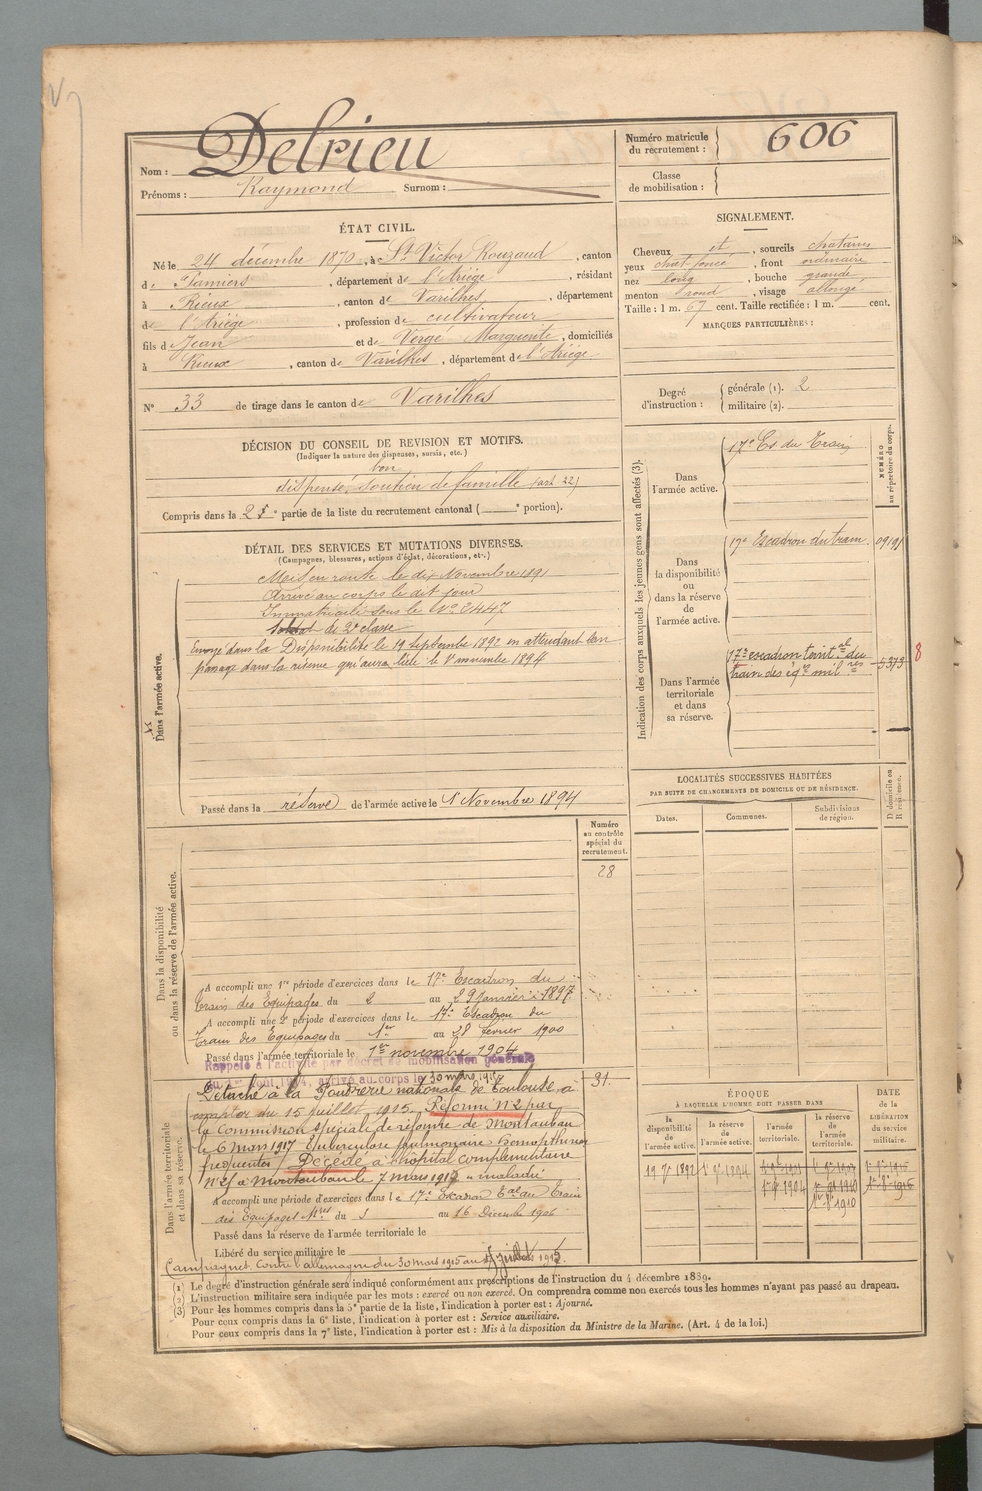 Nom : Delrieu
Prénoms : Raymond Surnom :
Numéro matricule du recrutement : 606
Classe de mobilisation :
ÉTAT CIVIL.
Né le 24 décembre 1870, à St Victor Rouzaud, canton
de Pamiers, département de l'Ariège, résidant
à Rieux, canton de Varilhes, département
de l'Ariège, profession de cultivateur
fils de Jean et de Vergé Marguerite, domiciliés
à Rieux, canton de Varilhes, département de l'Ariège
N° 33 de tirage dans le canton de Varilhes
SIGNALEMENT.
Cheveux et, sourcils chatains
yeux chat foncé, front ordinaire
nez long, bouche grande
menton rond, visage allongé
Taille : 1 m. 67 cent. Taille rectifiée : 1 m. cent.
MARQUES PARTICULIÈRES :
Degré d'instruction : générale (1). 2
militaire (2).
DÉCISION DU CONSEIL DE REVISION ET MOTIFS.
(Indiquer la nature des dispenses, sursis, etc.)
bon
dispensé, soutien de famille (art 22)
Compris dans la 2e partie de la liste du recrutement cantonal ( e portion).
DÉTAIL DES SERVICES ET MUTATIONS DIVERSES.
(Campagnes, blessures, actions d'éclat, décorations, etc.)
Dans l'armée active.
Mis en route le dix Novembre 1891
Arrivé au corps le dit jour
Immatriculé sous le N° 2447
Soldat de 2e classe
Envoyé dans la Disponibilité le 19 Septembre 1892 en attendant son
passage dans la réserve qui aura lieu le 1er novembre 1894
Passé dans la réserve de l'armée active le 1er Novembre 1894
Indication des corps auxquels les jeunes gens sont affectés (3).
NUMÉRO au répertoire du corps.
Dans l'armée active.
17e Es. du Train
Dans la disponibilité ou dans la réserve de l'armée active.
17e Escadron du train.
Dans l'armée territoriale et dans sa réserve.
17e escadron territal du
train des éqges milres
5373
8
LOCALITÉS SUCCESSIVES HABITÉES
PAR SUITE DE CHANGEMENTS DE DOMICILE OU DE RÉSIDENCE.
D domicile ou R résidence.
Dates.
Communes.
Subdivisions de région.
Numéro au contrôle spécial du recrutement.
28
Dans la disponibilité ou dans la réserve de l'armée active.
A accompli une 1re période d'exercices dans le 17e Escadron du
Train des Equipages du 2 au 29 janvier 1897
A accompli une 2e période d'exercices dans le 17e Escadron du
Train des Equipages du 1er au 28 février 1900
Passé dans l'armée territoriale le 1er novembre 1904
Rappelé à l'activité par décret de mobilisation générale
du 1er Août 1914, arrivé au corps le 30 mars 1915
31.
Dans l'armée territoriale et dans sa réserve.
Détaché à la Poudrerie nationale de Toulouse à
compter du 15 juillet 1915. Réformé N°2 par
la Commission spéciale de réforme de Montauban
le 6 Mars 1917 Tuberculose pulmonaire
fréquentes Décédé à l'hôpital complémentaire
à Montauban le 7 mars 1917 maladie
A accompli une période d'exercices dans le 17e Escadron Tal du Train
des Equipages Mres du au 16 Décembre 1906
Passé dans la réserve de l'armée territoriale le
Libéré du service militaire le
Campagnes. Contre l'allemagne du 30 mars 1915 au juillet 1915.
ÉPOQUE
À LAQUELLE L'HOMME DOIT PASSER DANS
la disponibilité de l'armée active.
la réserve de l'armée active.
l'armée territoriale.
la réserve de l'armée territoriale.
DATE de la LIBÉRATION du service militaire.
(1) Le degré d'instruction générale sera indiqué conformément aux prescriptions de l'instruction du 4 décembre 1889.
(2) L'instruction militaire sera indiquée par les mots : exercé ou non exercé. On comprendra comme non exercés tous les hommes n'ayant pas passé au drapeau.
(3) Pour les hommes compris dans la 5e partie de la liste, l'indication à porter est : Ajourné.
Pour ceux compris dans la 6e liste, l'indication à porter est : Service auxiliaire.
Pour ceux compris dans la 7e liste, l'indication à porter est : Mis à la disposition du Ministre de la Marine. (Art. 4 de la loi.)